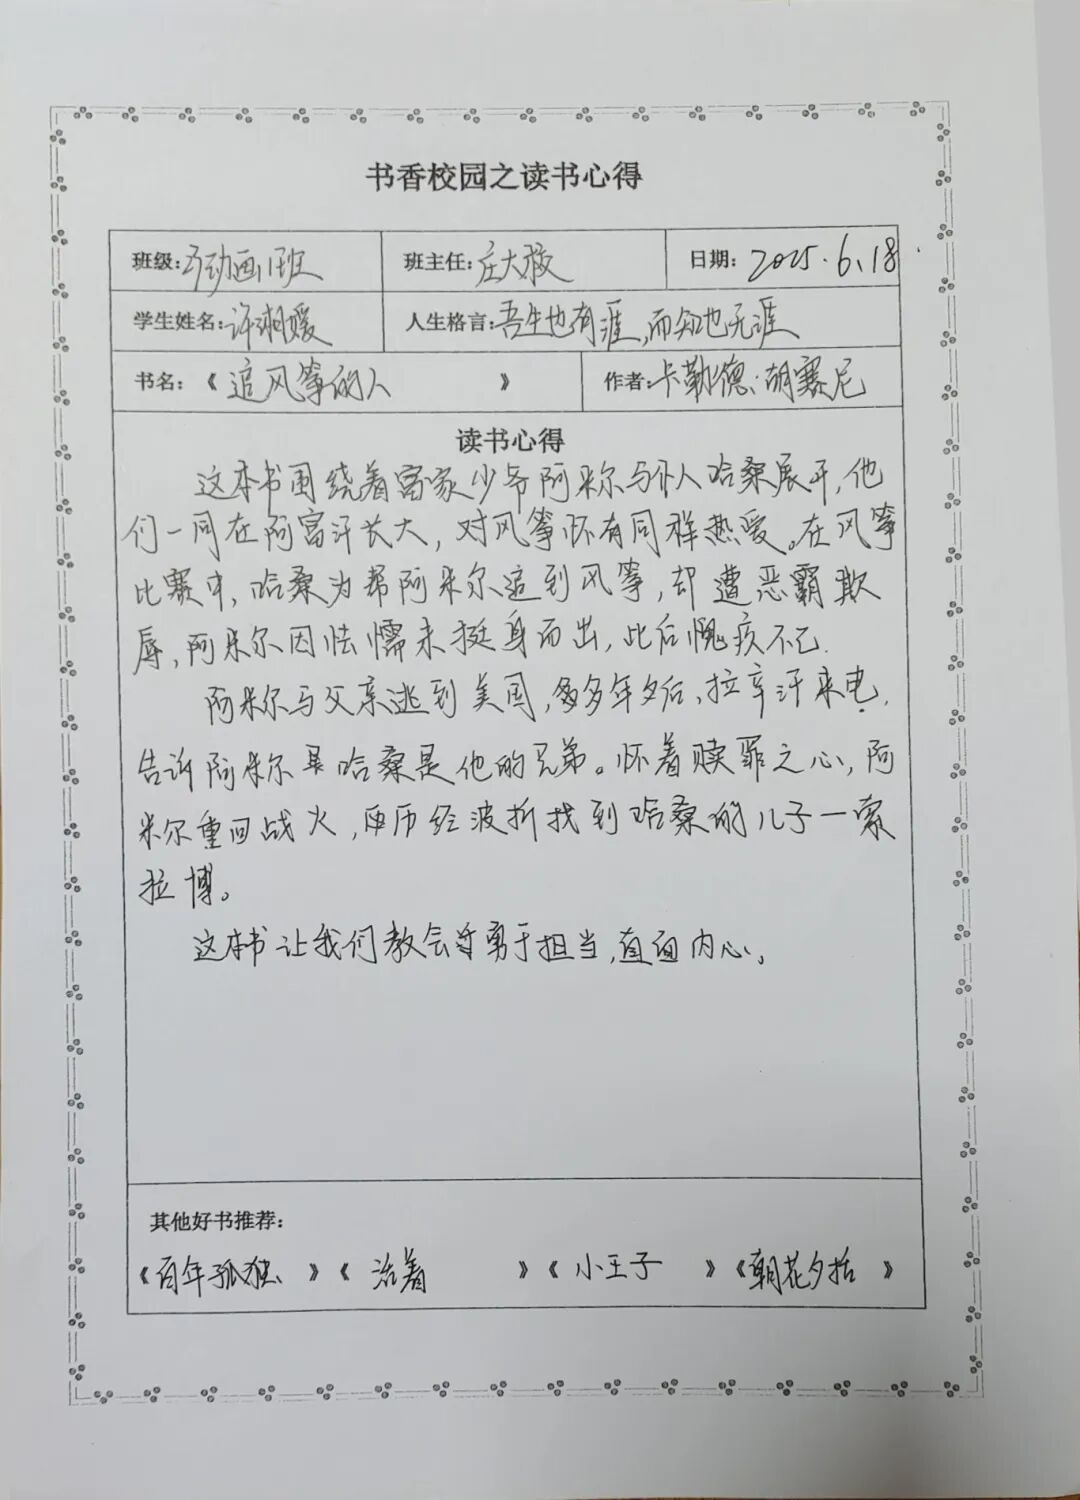 书香校园之读书心得
班级:动画1班 班主任:庄大教 日期:2025.6.18
学生姓名:许湘媛 人生格言:吾生也有涯,而知也无涯
书名:《追风筝的人》 作者:卡勒德·胡赛尼
读书心得
这本书围绕着富家少爷阿米尔与仆人哈桑展开,他
们一同在阿富汗长大,对风筝怀有同样热爱。在风筝
比赛中,哈桑为帮阿米尔追到风筝,却遭恶霸欺
辱,阿米尔因怯懦未挺身而出,此后愧疚不已.
阿米尔与父亲逃到美国,多年夕后,拉辛汗来电.
告诉阿米尔哈桑是他的兄弟。怀着赎罪之心,阿
米尔重回战火,历经波折找到哈桑的儿子一索
拉博。
这本书让我们教会勇于担当,直面内心.
其他好书推荐:
《百年孤独》《活着》《小王子》《朝花夕拾》